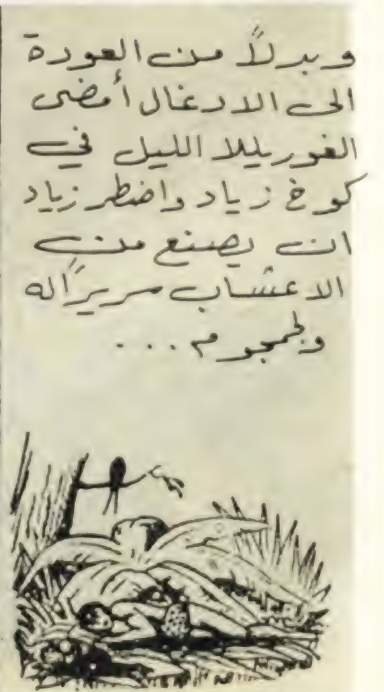 وبدلاً من العودة
الى الادغال أمضى
الغوريللا الليل في
كوخ زياد واضطر زياد
ان يصنع من
الاعشاب سريراً له
ولجمجوم ...